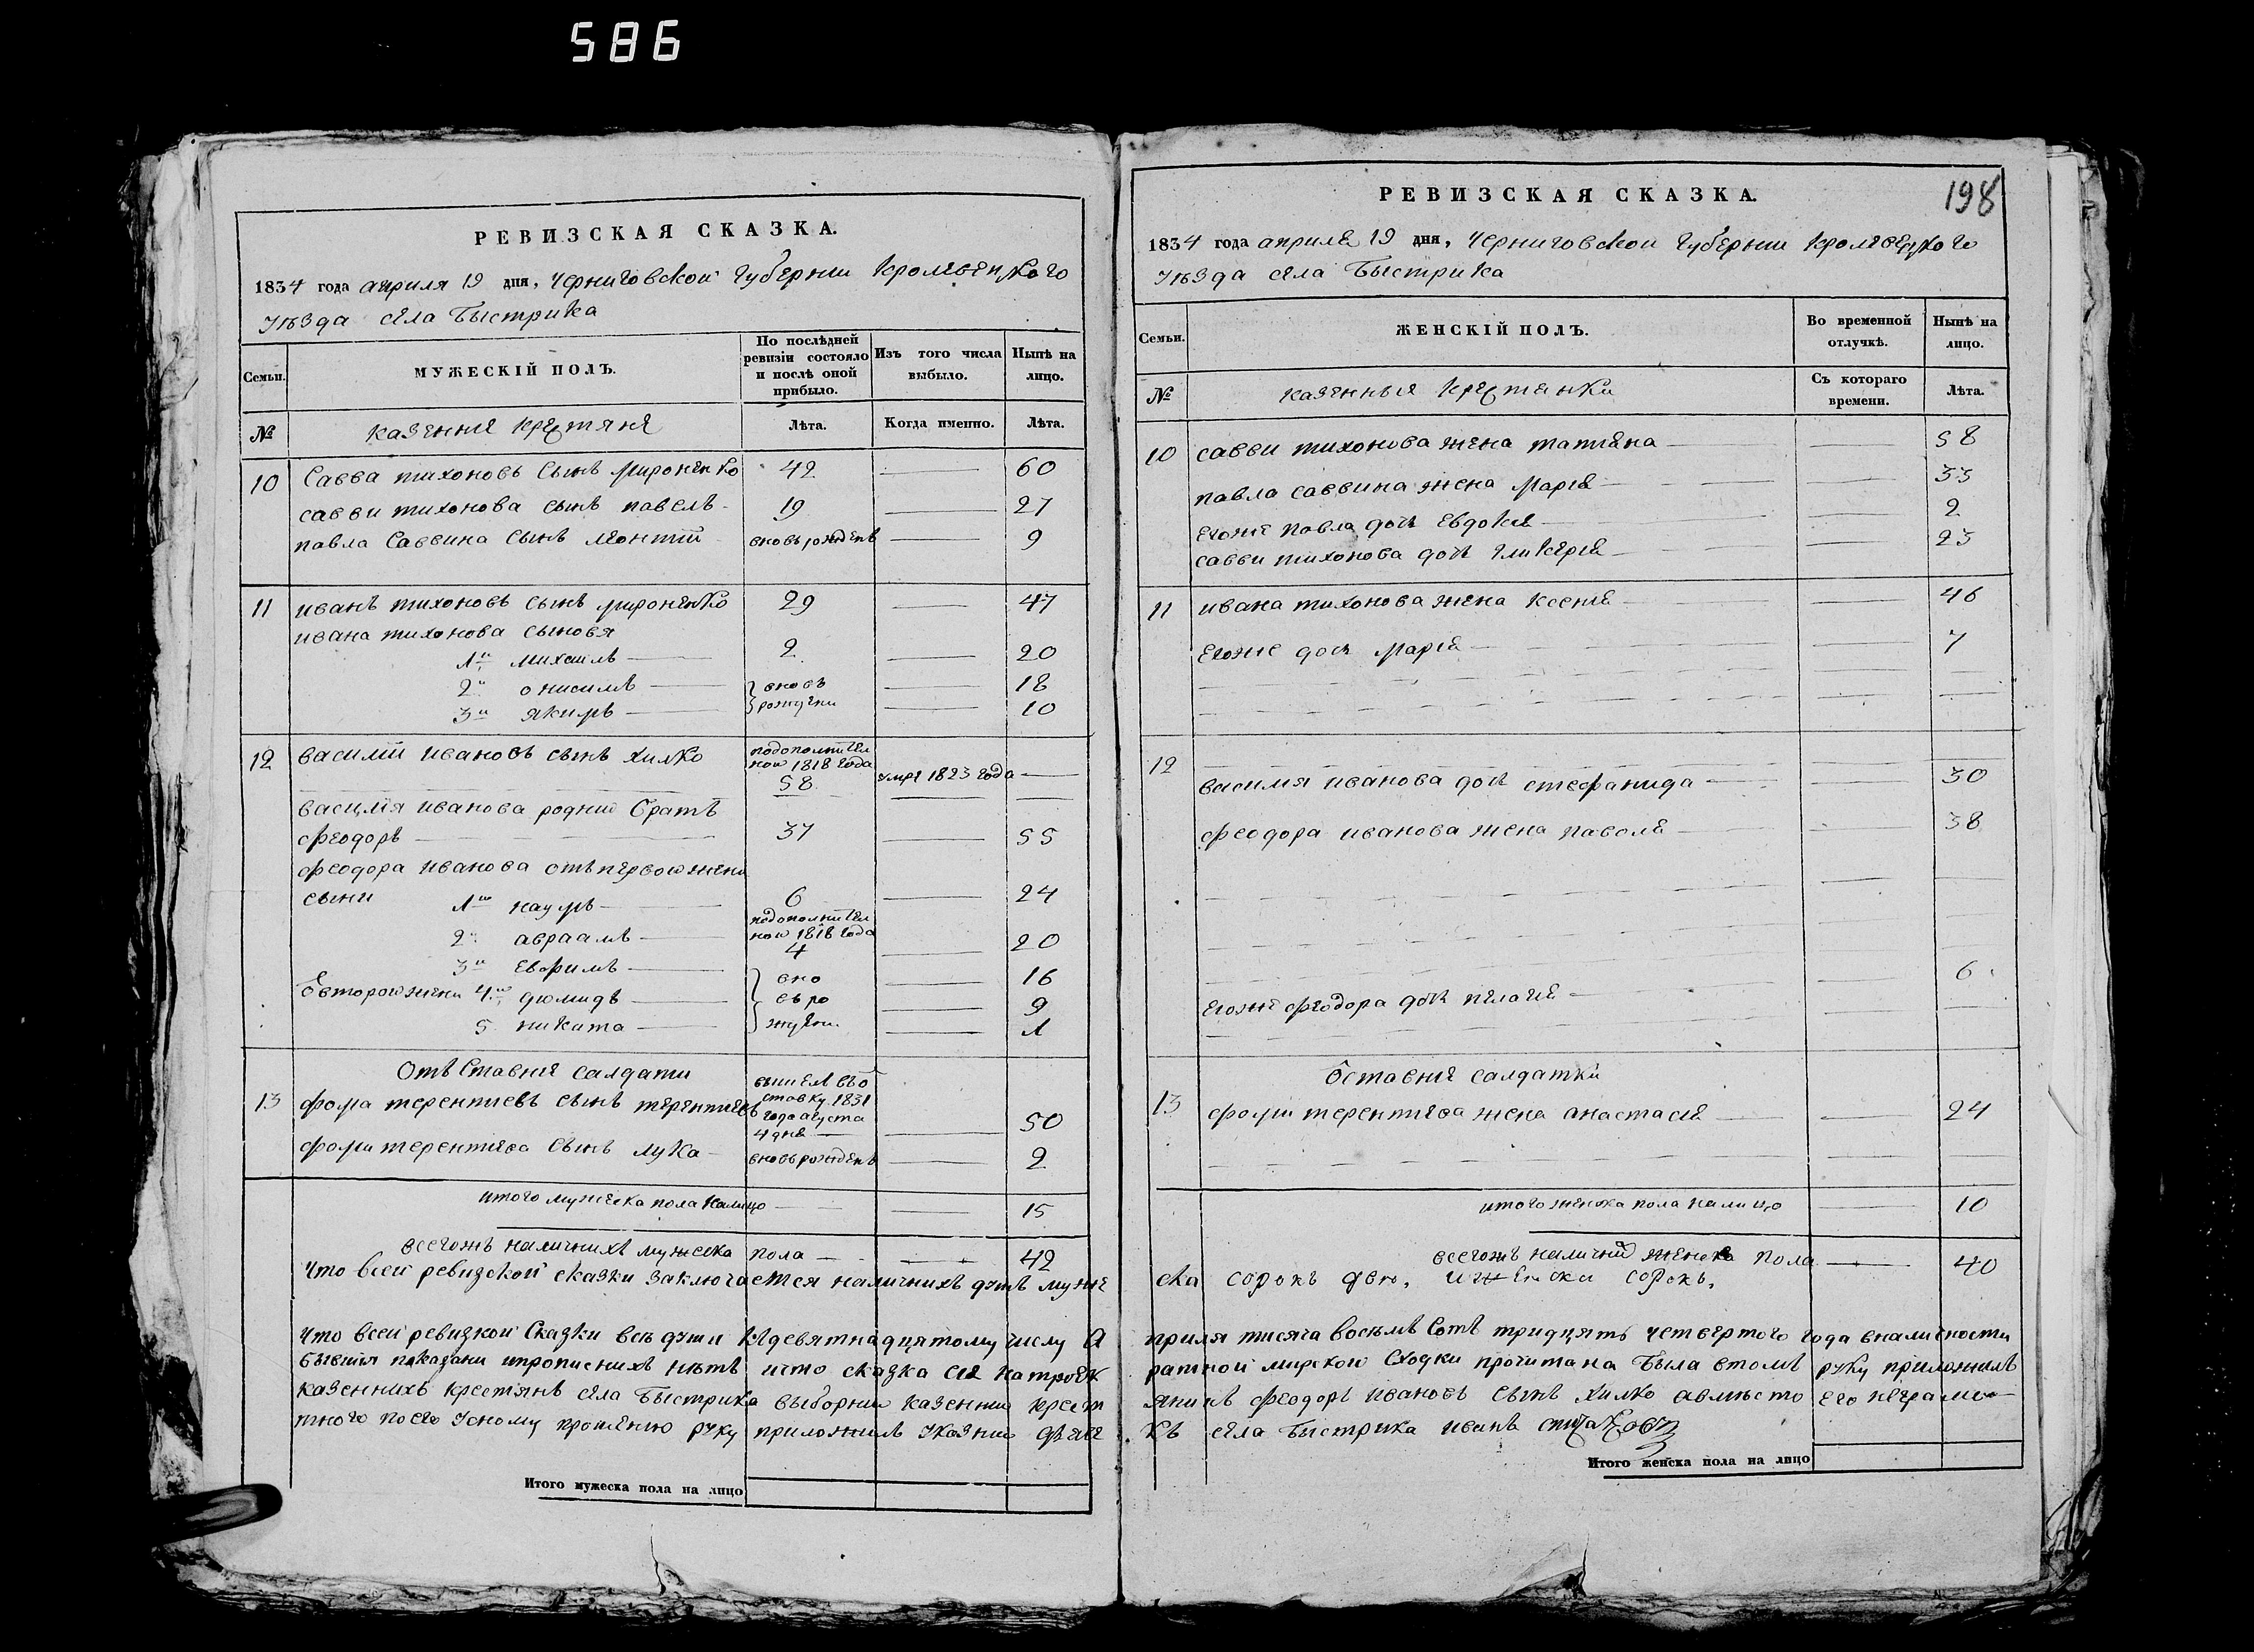 586
РЕВИЗСКАЯ СКАЗКА.
1834 года апреля 19 дня, черниговской губернии кролевецкого
уѣзда села Быстрика
Семьи.
МУЖЕСКІЙ ПОЛЪ.
По послѣдней ревизіи состояло и послѣ оной прибыло.
Изъ того числа выбыло.
Нынѣ на лицо.
№
казенние крестяне
Лѣта.
Когда именно.
Лѣта.
10 Савва тихоновъ сынъ мироненко 42 — 60
савви тихонова сынъ павелъ 19 — 27
павла Саввина сынъ леонтій вновь рожденъ — 9
11 иванъ тихоновъ сынъ мироненко 29 — 47
ивана тихонова сыновя
1й михаилъ — 2 — 20
2й онисимъ — вновъ — 18
3й якимъ — рождени — 10
12 василій ивановъ сынъ хилко подополнител
ной 1818 года
58 умре 1823 года —
василія иванова родний братъ
феодоръ — 37 — 55
феодора иванова отъ первой жени
сыни 1й наумъ — 6 — 24
подополнител
ной 1818 года
2й авраамъ — 4 — 20
3й евфимъ — вно — 16
от второй жени 4й диомидъ — въ ро — 9
5 никита — ждени — 1
Отъставние салдати
13 фома терентиевъ сынъ терентиевъ вышелъ въ от
ставку 1831
года августа
4 дня — 50
фоми терентиева сынъ лука вновь рожденъ — 2
итого мужеска пола налицо — — 15
всегожъ наличнихъ мужеска пола — 42
РЕВИЗСКАЯ СКАЗКА.
198
1834 года апреля 19 дня, черниговской губернии кролевецкого
уѣзда села Быстрика
Семьи.
ЖЕНСКІЙ ПОЛЪ.
Во временной отлучкѣ.
Нынѣ на лицо.
№
казенныя крестянки
Съ котораго времени.
Лѣта.
10 савви тихонова жена татиана — 58
павла саввина жена марія — 33
егоже павла дочь евдокия — 2
савви тихонова дочь гликерія — 23
11 ивана тихонова жена ксения — 46
егоже дочь марія — 7
12
василия иванова дочь стефанида — 30
феодора иванова жена — 38
егоже феодора дочь пелагея — 6
отставние салдатки
13 фоми терентиева жена анастасия — 24
итого женска пола налицо — 10
всегожъ наличній женска пола — 40
Что всей ревизской сказки заключается наличнихъ душъ муже
ска сорокъ двѣ, и женски сорокъ,
Что всей ревизкой Сказки всѣ души к девятнадцятому числу а
приля тисяча восьмъ сотъ тридцять четвертого года вналичности
бывшія показани ипрописнихъ нѣтъ ичто сказка сия натроек
ратной мирской сходки прочитана была втомъ руку приложилъ
казеннихъ крестянъ села Быстрика выборний казенний крест
янинъ феодоръ ивановъ сынъ хилко авмѣсто его неграмо
тного поего усному прошению руку приложилъ указний дяче
къ села Быстрика иванъ
Итого мужеска пола на лицо
Итого женска пола на лицо